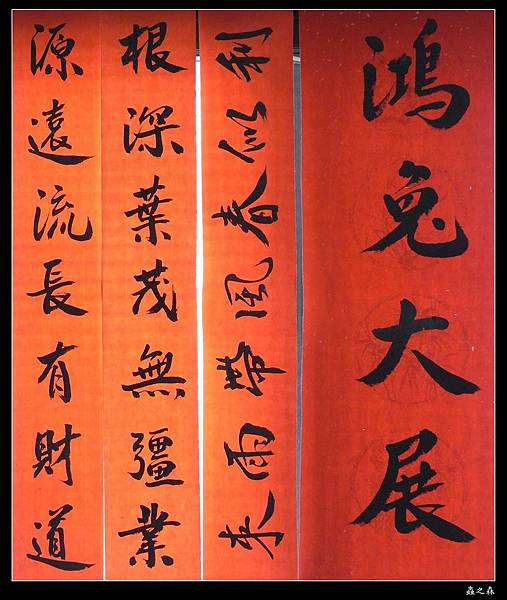 鴻兔大展
利似春風帶雨來
根深葉茂無疆業
源遠流長有財道
蟲之森